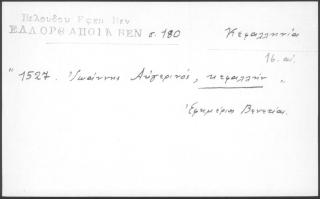 Βελούδου Εφημ Βεν
ΕΛΛΟΡΘΑΠΟΙΚ ΒΕΝ σ. 180 Κεφαλληνία
16. αἰ.
" 1527. Ἰωάννης Αὐγερινός, κεφαλλήν "
Ἐφημέριοι Βενετίας.